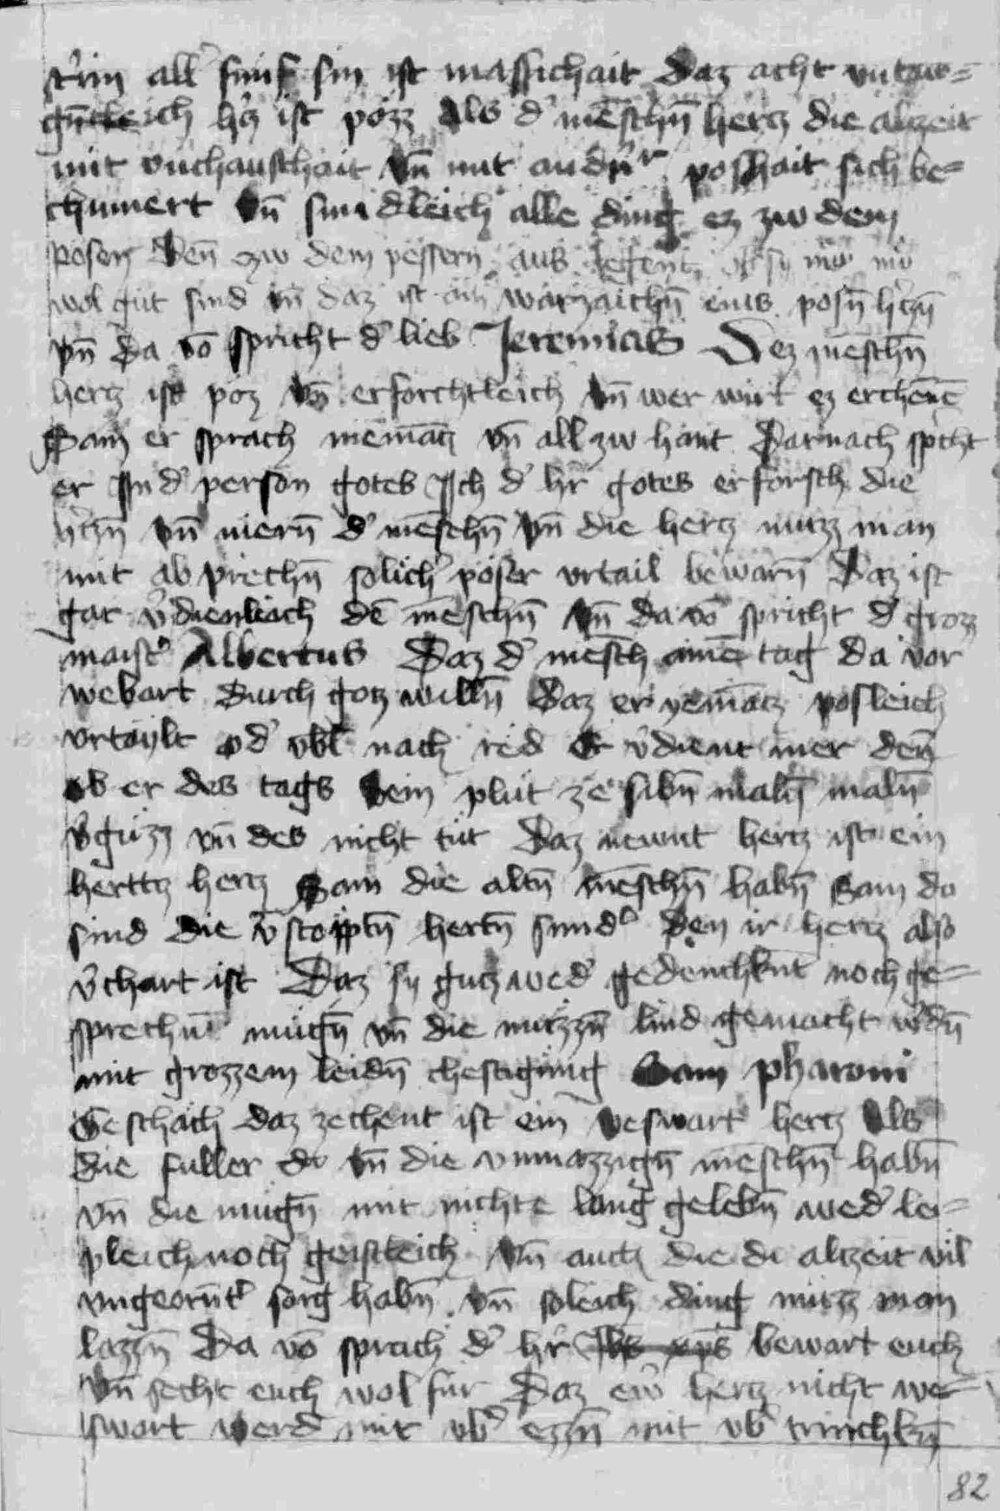 st'rin all' funf sin ist massichait Daz acht vntar=
gn̄tleich h'cz ist pözz Als d' mēschn̄ hercz die alzeit
mit vnchauschait vn̄ mit andn̄' poshait sich be=
chumert vn̄ sunidleich alle ding ez zw dem
posen den̄ zw dem pessern aus legent
wol gut sind vn̄ daz ist ain warzaichn̄ eins posn̄ h'czn̄
vn̄ Da vō spricht d' lieb Jeremias Dez mēschn̄
hercz ist poz vn̄ erforchtleich vn̄ wer wirt ez erchēnē
Sam er sprach niemācz vn̄ all zw hant Darnach sp'cht
er In d' person gotes Ich d' h'r gotes erforsch die
h'czn̄ vn̄ niern̄ d' mēschn̄ vn̄ die hercz muzz man
mit ab prechn̄ solich' poser vrtail bewarn̄ Daz ist
gar v'dienleich dē mēschn̄ vn̄ da vō spricht d' grozz
maist' Albertus Daz d' mēsch ainē tag da vor
webart Durch gotz willn̄ Daz er yemācz posleich
vrtaylt od' vbl' nach red Er v'dient mer den̄
ob er des tags sein plut ze sibn̄ maln̄ maln̄
v'guzz vn̄ des nicht tut Daz newnt hercz ist ein
herttz hercz Sam die altn̄ mēschn̄ habn̄ Sam do
sind die v'stopptn̄ hertn̄ sund' Den ir hercz also
v'chart ist Daz sy gutz wed' gedenchkn̄t noch ge=
sprechn̄ mugn̄ vn̄ die muzzn̄ lind gemacht w'dn̄
mit grozzem leidn̄ chestigung Sam pharoni
Geschach daz zechent ist ein veswart hercz Als
die fuller do vn̄ die vnmazzign̄ mēschn̄ habn̄
vn̄ die mugn̄ mit nichte lang gelebn̄ wed' lei=
pleich noch geistleich Vn̄ auch die di alzeit vil
vngeorn̄t' sorg habn̄ vn̄ soleich ding muzz man
lazzn̄ Da vō sprach d' h'r ihs xps bewart euch
Vn̄ secht euch wol fur Daz ew' hercz nicht we=
swart werd mit vb' ezzn̄ mit vb' trinchkn̄
82